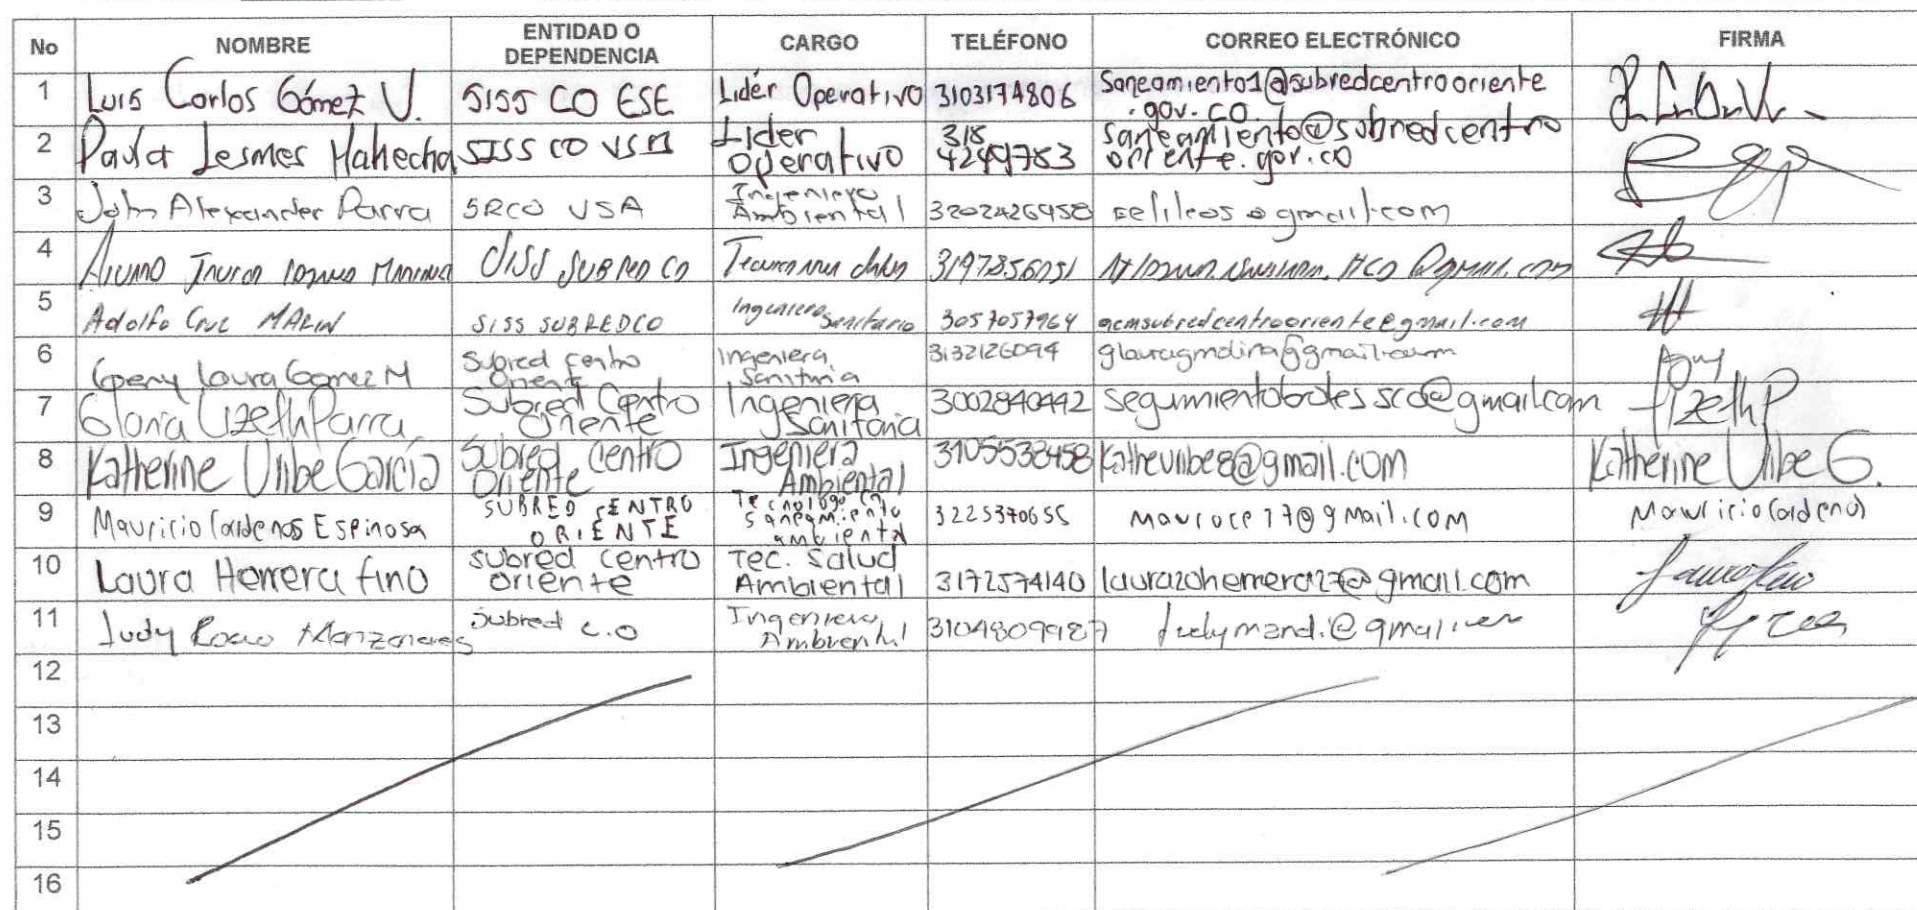 No NOMBRE ENTIDAD O DEPENDENCIA CARGO TELÉFONO CORREO ELECTRÓNICO FIRMA
1 Luis Carlos Gómez V. SISS CO ESE Lidér Operativo 3103174806 Saneamiento1@subredcentrooriente.gov.co.
2 Paula Lesmes Mahecha SISS CO USA Lider operativo 318 4249783 saneamiento@subredcentrooriente.gov.co
3 John Alexander Parra SRCO USA Ingeniero Ambiental 3202426458 @gmail.com
4 SISS SUBRED CO @gmail.com
5 Adolfo Cruz MARIN SISS SUBREDCO Ingeniero Sanitario 3057057964 acmsubredcentrooriente@gmail.com
6 Laura Gomez M Subred Centro Oriente Ingeniera Sanitaria 3132126094
7 Gloria Lizeth Parra Subred Centro Oriente Ingeniera Sanitaria 3002840442 Lizeth P
8 Katherine Uribe García Subred Centro Oriente Ingeniera Ambiental 3105538458 Katheuribe8@gmail.com Katherine Uribe G.
9 Mauricio Cardenas Espinosa SUBRED CENTRO ORIENTE Tecnologo en saneamiento ambiental 3225370655 Mauricio Cardenas
10 Laura Herrera fino subred centro oriente Tec. Salud Ambiental 3172574140
11 Judy Rocio Manzanares Subred C.O Ingeniera Ambiental
12
13
14
15
16